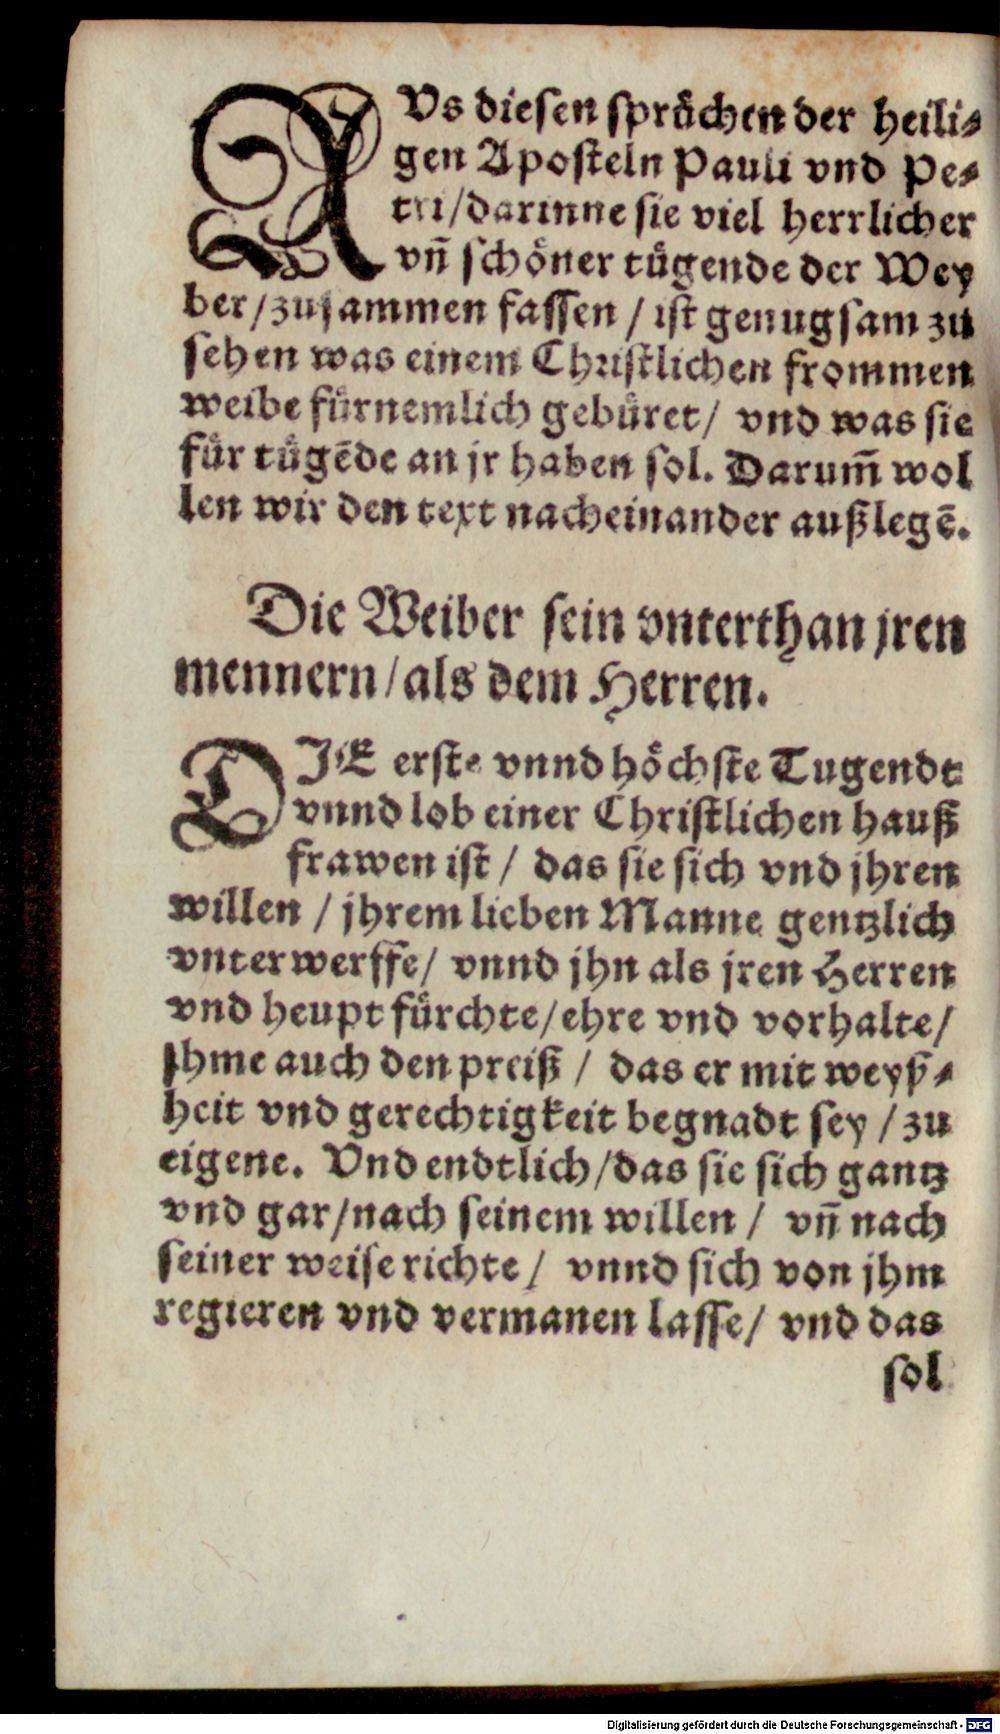 AVs diesen sprüchen der heili⸗
gen Aposteln Pauli vnd Pe⸗
tri/darinne sie viel herrlicher
vn̄ schöner tügende der Wey
ber/zusammen fassen / ist genugsam zu
sehen was einem Christlichen frommen
weibe fürnemlich gebüret/ vnd was sie
für tügēde an jr haben sol. Darum̄ wol
len wir den text nacheinander außlegē.
Die Weiber sein vnterthan jren
mennern/als dem Herren.
DIE erste vnnd höchste Tugendt
vnnd lob einer Christlichen hauß
frawen ist / das sie sich vnd jhren
willen / jhrem lieben Manne gentzlich
vnterwerffe/ vnnd jhn als jren Herren
vnd heupt fürchte/ehre vnd vorhalte/
Ihme auch den preiß / das er mit weyß⸗
heit vnd gerechtigkeit begnadt sey / zu
eigene. Vnd endtlich/das sie sich gantz
vnd gar/nach seinem willen / vn̄ nach
seiner weise richte / vnnd sich von jhm
regieren vnd vermanen lasse/ vnd das
sol
Digitalisierung gefördert durch die Deutsche Forschungsgemeinschaft - DFG